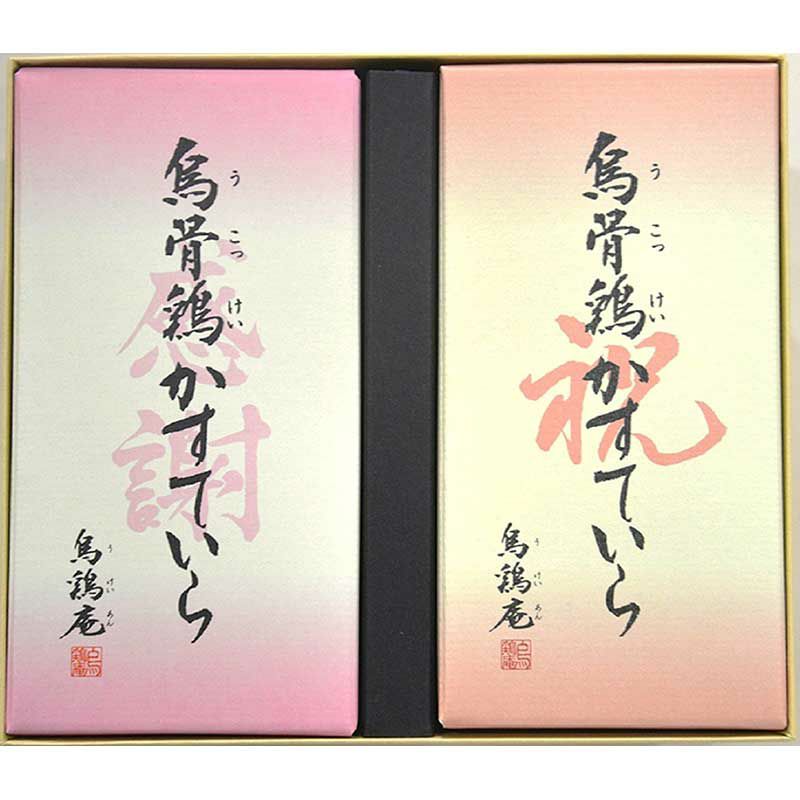 烏骨鶏かすていら
うこっけい
感謝
烏鶏庵
うけいあん
烏骨鶏かすていら
うこっけい
祝
烏鶏庵
うけいあん